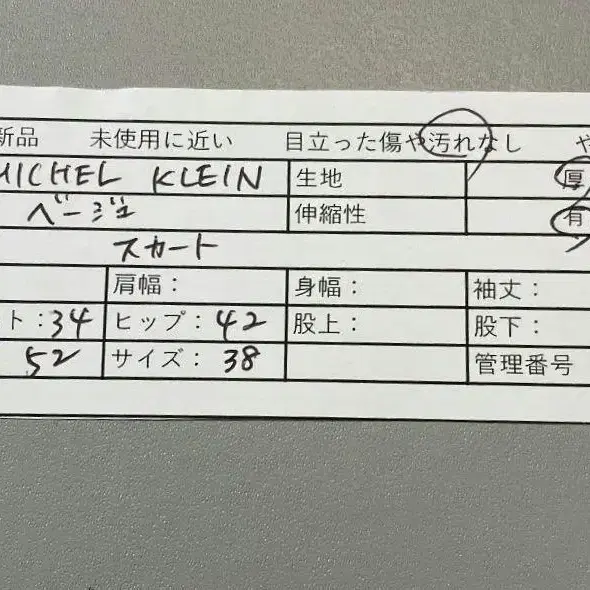 新品 未使用に近い 目立った傷や汚れなし や
MICHEL KLEIN 生地 厚
ベージュ 伸縮性 有
スカート
肩幅： 身幅： 袖丈：
ト：34 ヒップ：42 股上： 股下：
52 サイズ： 38 管理番号